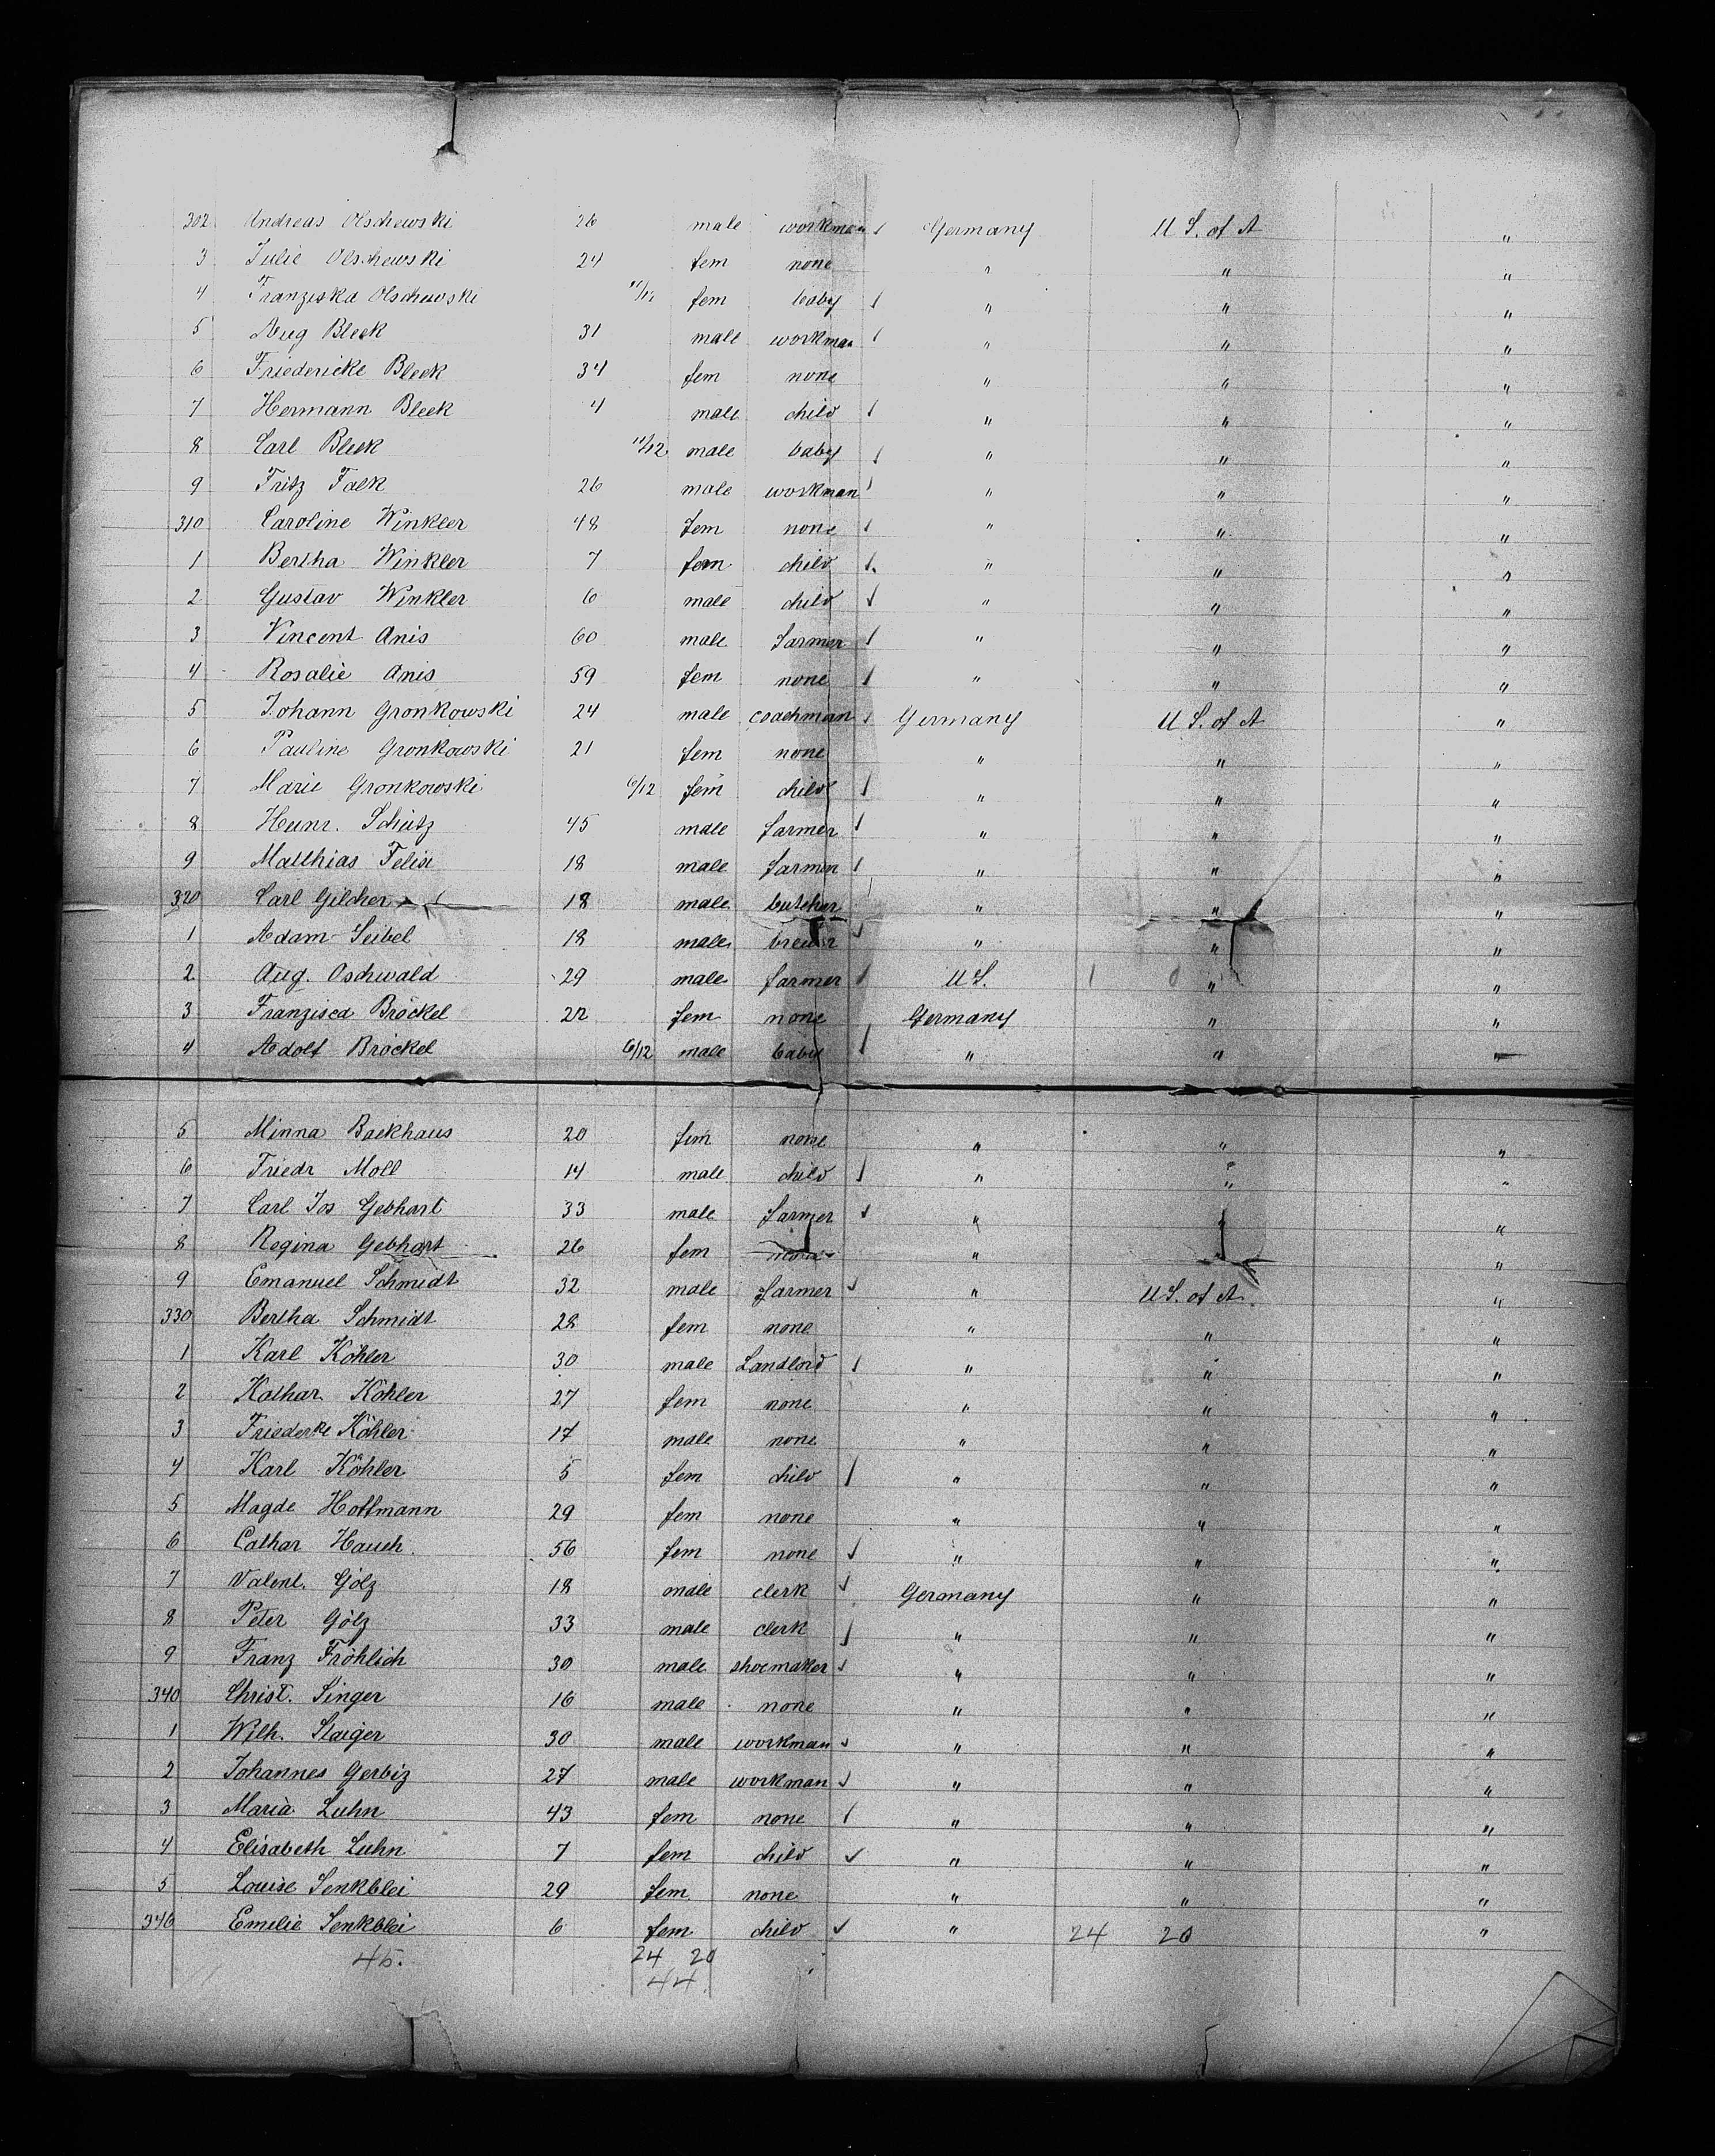 302 Andreas Olschewski 26 male workman Germany U S. of A "
3 Julie Olschewski 24 fem none " " "
4 Franziska Olschewski 11/12 fem baby " " "
5 Aug Bleek 31 male workman " " "
6 Friedericke Bleek 34 fem none " " "
7 Hermann Bleek 4 male child " " "
8 Carl Bleek 11/12 male baby " " "
9 Fritz Falk 26 male workman " " "
310 Caroline Winkler 48 fem none " " "
1 Bertha Winkler 7 fem child " " "
2 Gustav Winkler 6 male child " " "
3 Vincent Anis 60 male farmer " " "
4 Rosalie Anis 59 fem none " " "
5 Johann Gronkowski 24 male coachman Germany U S. of A "
6 Pauline Gronkowski 21 fem none " " "
7 Marie Gronkowski 6/12 fem child " " "
8 Heinr. Schütz 45 male farmer " " "
9 Matthias 18 male farmer " " "
320 Carl Gilcher 18 male butcher " " "
1 Adam Seibel 18 male brewer " " "
2 Aug. Oschwald 29 male farmer U S. "
3 Franzisca Bröckel 22 fem none Germany " "
4 Adolf Bröckel 6/12 male baby " " "
5 Minna Backhaus 20 fem none " " "
6 Friedr Moll 14 male child " " "
7 Carl Jos Gebhart 33 male farmer " " "
8 Regina Gebhart 26 fem none " " "
9 Emanuel Schmidt 32 male farmer " U S. of A. "
330 Bertha Schmidt 28 fem none " " "
1 Karl Köhler 30 male Landlord " " "
2 Kathar Köhler 27 fem none " " "
3 Friederke Köhler 17 male none " " "
4 Karl Köhler 5 fem child " " "
5 Magde Hoffmann 29 fem none " " "
6 Cathar Hauch 56 fem none " " "
7 Valent. Gölz 18 male clerk Germany " "
8 Peter Gölz 33 male clerk " " "
9 Franz Fröhlich 30 male shoemaker " " "
340 Christ. Singer 16 male none " " "
1 Wilh. Staiger 30 male workman " " "
2 Johannes Gerbig 27 male workman " " "
3 Maria Luhn 43 fem none " " "
4 Elisabeth Luhn 7 fem child " " "
5 Louise Senkblei 29 fem none " " "
346 Emilie Senkblei 6 fem child " 24 20 "
45. 24 20
44